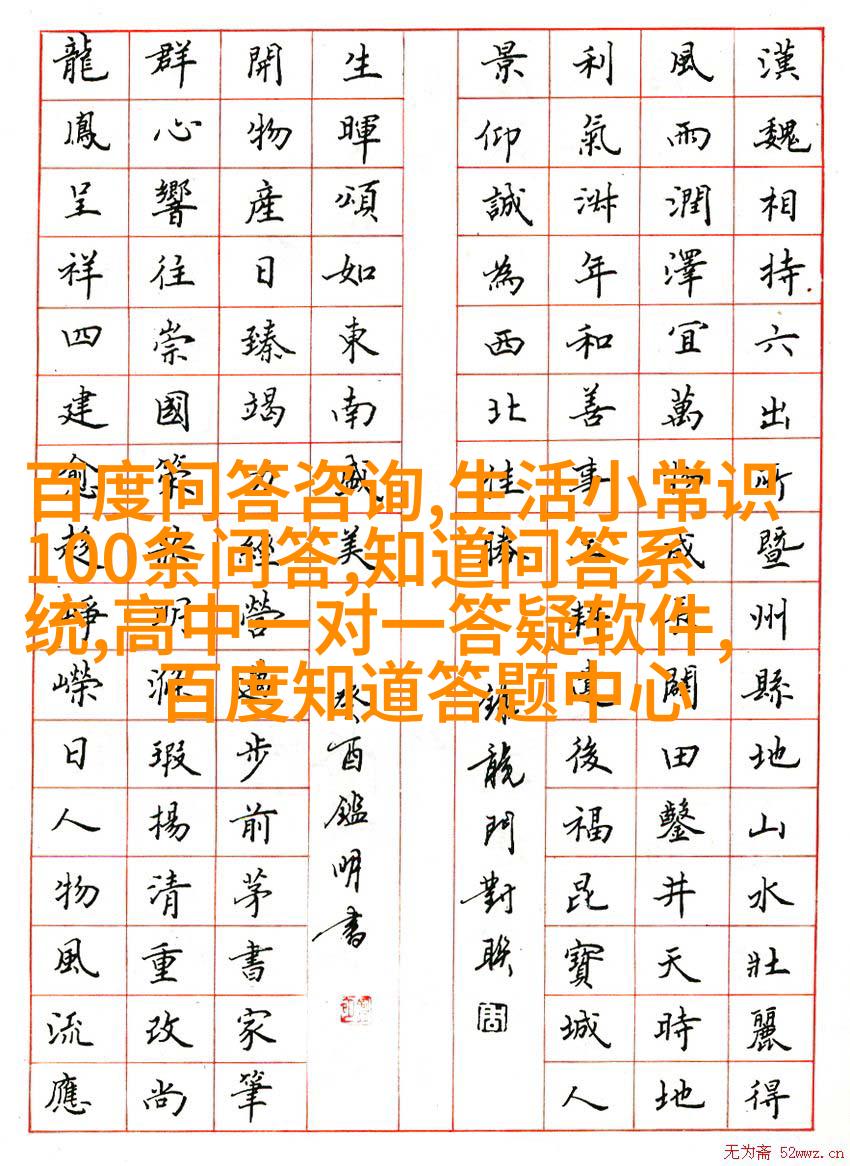 漢魏相持六出所暨州縣地山水壯麗得
風雨潤澤宜萬物咸闢田鑿井天時地
利氣淑年和善事耕後福昆寶城人
景仰誠為西北佳勝
錄龍門對聯
生暉頌如東南盛美
癸酉鑑明書
開物產日臻竭力經營邁步前茅書家筆
群心響往崇國策明滌瑕揚清重改尚
龍鳳呈祥四建愈趨崢嶸日人物風流應
百度问答咨询,生活小常识
100条问答,知道问答系
统,高中一对一答疑软件,
百度知道答题中心
无为斋 52wwz.cn